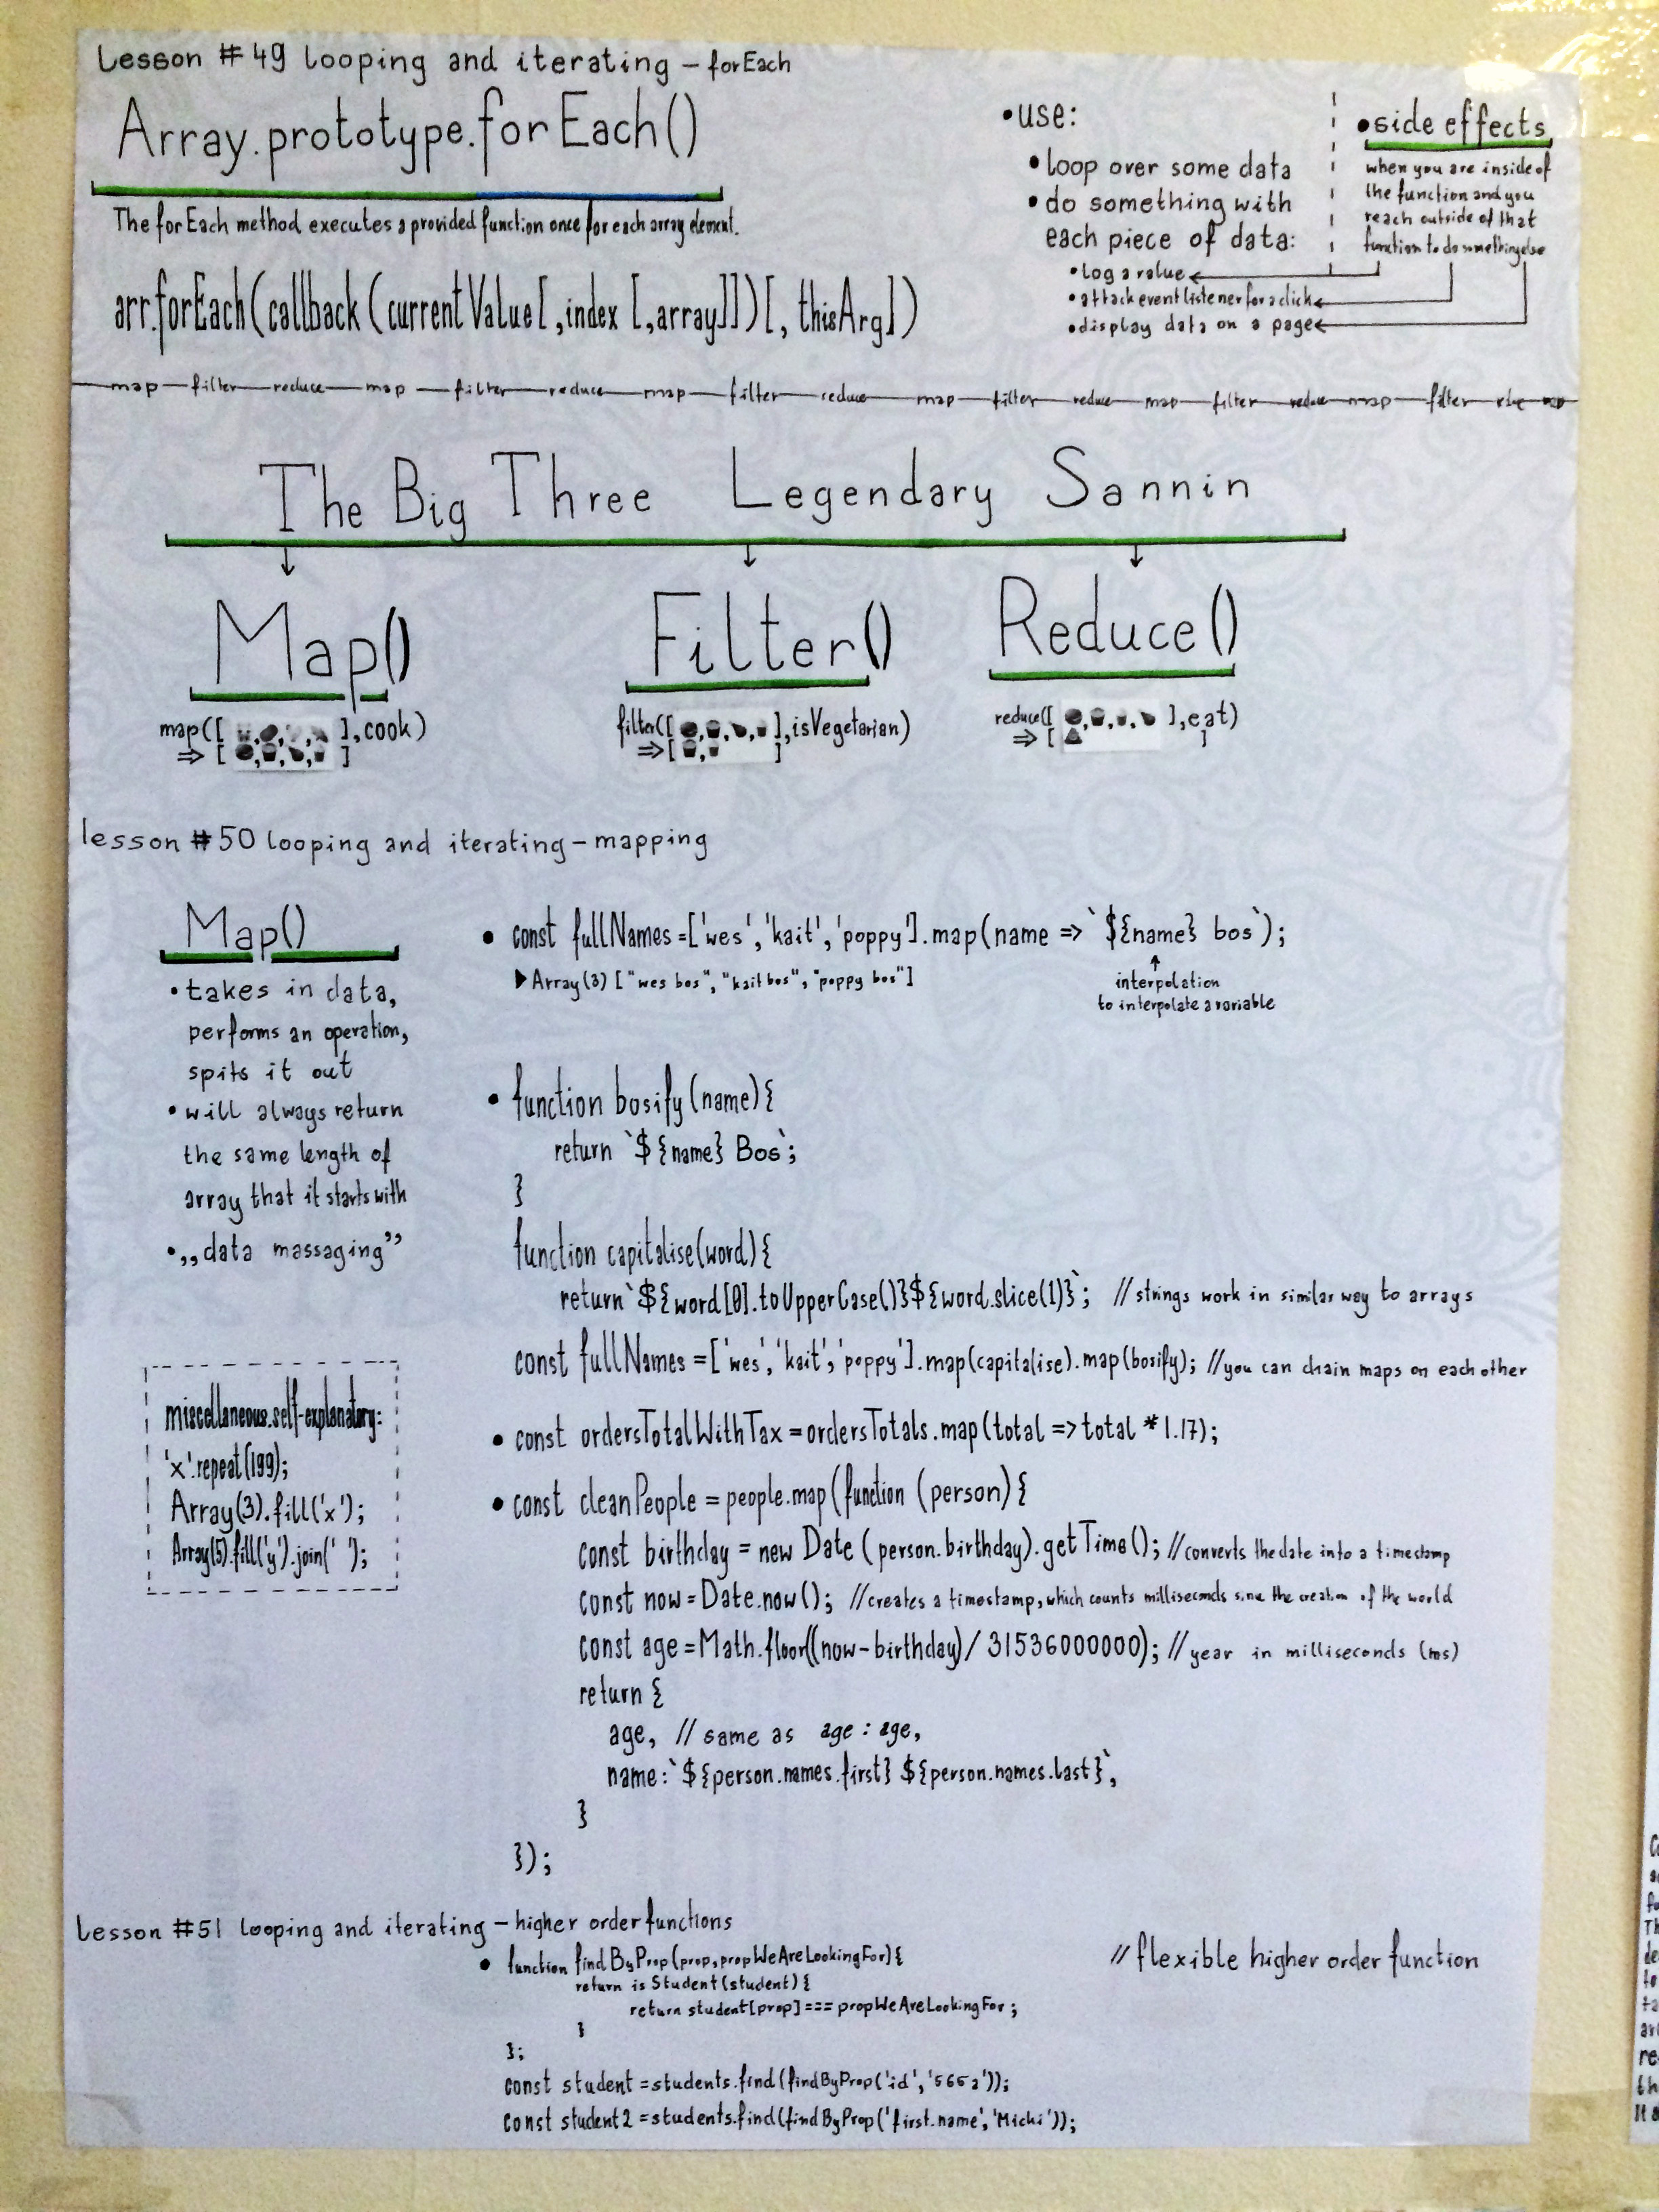 Lesson #49 looping and iterating – forEach
Array.prototype.forEach()
The forEach method executes a provided function once for each array element.
arr.forEach(callback(currentValue[,index[,array]])[, thisArg])
•use:
•loop over some data
•do something with
each piece of data:
•log a value
•attack event listener for a click
•display data on a page
•side effects
when you are inside of
the function and you
reach outside of that
function to do something else
map—filter—reduce—map—filter—reduce—map—filter—reduce—map—filter—reduce—map—filter—reduce—map—filter
The Big Three Legendary Sannin
Map()
map([ , , , ],cook)
⇒ [ , , , ]
Filter()
filter([ , , , ],isVegetarian)
⇒ [ , ]
Reduce()
reduce([ , , , ],eat)
⇒ [ ]
lesson #50 looping and iterating – mapping
Map()
•takes in data,
performs an operation,
spits it out
•will always return
the same length of
array that it starts with
•„data massaging”
miscellaneous.self-explanatory:
'x'.repeat(199);
Array(3).fill('x');
Array(5).fill('y').join(' ');
• const fullNames=['wes','kait','poppy'].map(name => `${name} bos`);
▶Array(3) ["wes bos", "kait bos", "poppy bos"]
interpolation
to interpolate a variable
• function bosify(name){
return `${name} Bos`;
}
function capitalise(word){
return `${word[0].toUpperCase()}${word.slice(1)}`; // strings work in similar way to arrays
const fullNames=['wes','kait','poppy'].map(capitalise).map(bosify); //you can chain maps on each other
• const ordersTotalWithTax=ordersTotals.map(total => total * 1.17);
• const cleanPeople = people.map(function (person){
const birthday = new Date(person.birthday).getTime(); //converts the date into a timestamp
const now=Date.now(); //creates a timestamp, which counts milliseconds since the creation of the world
const age=Math.floor((now-birthday)/31536000000); //year in milliseconds (ms)
return {
age, // same as age: age,
name:`${person.names.first} ${person.names.last}`,
}
});
Lesson #51 looping and iterating – higher order functions
• function findByProp(prop,propWeAreLookingFor){
return isStudent(student){
return student[prop]===propWeAreLookingFor;
}
};
const student=students.find(findByProp('id','565a'));
const student2=students.find(findByProp('first.name','Micki'));
// flexible higher order function